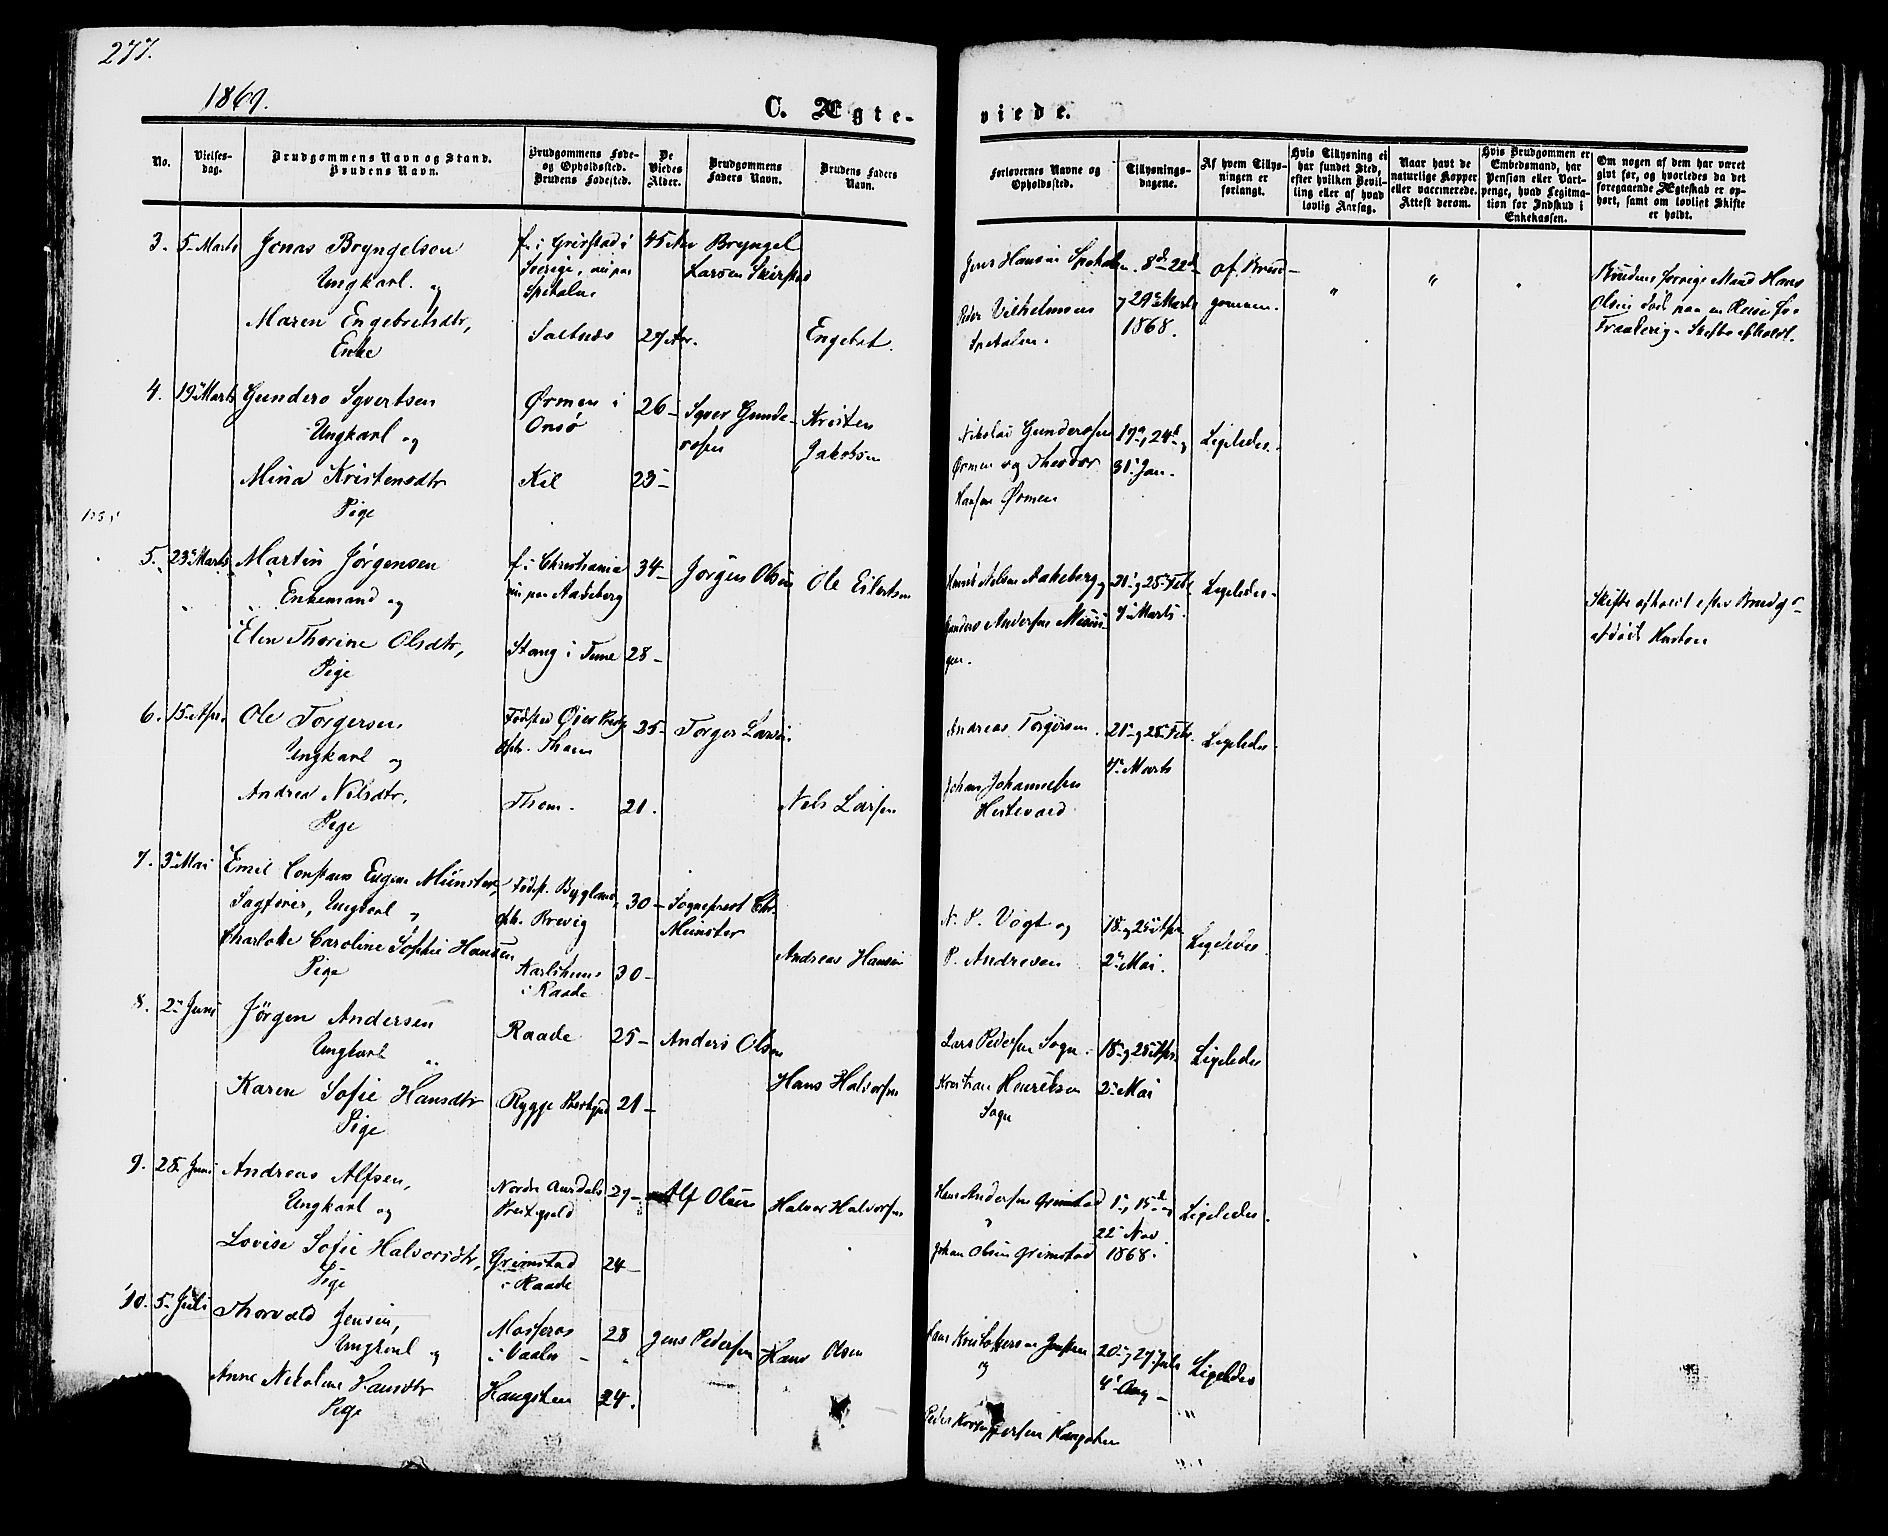 277.
1869.
C. Ægte-
viede.
No.
Vielses-
dag.
Brudgommens Navn og Stand.
Brudens Navn.
Brudgommens Føde-
og Opholdssted.
Brudens Fødested.
De
Viedes
Alder.
Brudgommens
Faders Navn.
Brudens Faders
Navn.
Forlovernes Navne og
Opholdssted.
Tillysnings-
dagene.
Af hvem Tillys-
ningen er
forlangt.
Hvis Tillysning ei
har fundet Sted,
efter hvilken Bevil-
ling eller af hvad
lovlig Aarsag.
Naar havt de
naturlige Kopper
eller vaccinerede.
Attest derom.
Hvis Brudgommen er
Embedsmand, har
Pension eller Vart-
penge, hvad Legitima-
tion for Indskud i
Enkekassen.
Om nogen af dem har været
givt før, og hvorledes da det
foregaaende Ægteskab er op-
hørt, samt om lovligt Skifte
er holdt.
3. 5 Marts Jonas Bryngelsen
Ungkarl. og
Maren Engebretsdtr,
Enke
f. i
Sverige,
Spetalen
Saltnes
45 Aar
27 Aar.
Bryngel
Larsen
Engebret.
Jens Hansen Spetalen
Vilhelmsen
Spetalen.
8de 22de
29 Marts
1868.
af Brud-
gommen.
" " "
Brudens forrige Mand Hans
Olsen død paa en Reise fra
Skifte afholdt.
4. 19 Marts Gunders Syvertsen
Ungkarl og
Mina Kristensdtr
Pige
Ørmen i
Onsø
Kil
26-
23-
Syver Gunde-
rosen
Kristen
Jakobsen
Nikolai Gundersen
Ørmen og Theodor
Hansen Ørmen
17de, 24de
31 Jan.
Ligeledes.
5. 23 Marts Martin Jørgensen
Enkemand og
Elen Thorine Olsdtr,
Pige
f. i Christiania
Stang i Tune
34-
28-
Jørgen Olsen
Ole Eilertsen
Nilsen Aakeberg
Andersen
21 og 28 Febr
7 Marts.
Ligeledes.
Skifte afholdt efter Brudg
afdøde Hustru
6. 15 Apr. Ole Torgersen
Ungkarl og
Andrea Nilsdtr,
Pige
Fødested Øier
oph. Thom
Thom.
35-
21.
Torger Larsen
Nils Larsen
Andreas Torgersen.
Johan Johannesen
21 og 28 Febr.
7 Marts
Ligeledes.
7. 3 Mai Emil Constans Eugen Münster,
Sagfører, Ungkarl og
Charlotte Caroline Sophie Hansen
Pige
Fødest. Bygland,
oph. Brevig
Karlshuus
i Raade
30-
30-
Sogneprest Chr.
Münster
Andreas Hansen
N. P. Vogt og
P. Andresen
18 og 25 Apr
2 Mai.
Ligeledes
8. 2 Juni Jørgen Andersen
Ungkarl
Karen Sofie Hansdtr
Pige
Raade
Rygge
25-
21-
Anders Olsen
Hans Halvorsen
Lars Pedersen Sogn
Kristian Henriksen
Sogn
18 og 25 Apr
2 Mai
Ligeledes
9. 25 Juni Andreas Alfsen,
Ungkarl og
Lovise Sofie Halvorsdtr,
Pige
Nordre Aurdals
Prestegjeld
Grimstad
i Raade
27-
24-
Alf Olsen
Halvor Halvorsen
Hans Andersen Grimstad
Johan Olsen Grimstad
1, 15de
22 Nov
1868.
Ligeledes.
10. 5 Juli Thorvald Jensen,
Ungkarl og
Anne Nikoline Hansdtr
Pige
Mosseros
i Vaaler
Haugsten
28
24.
Jens Pedersen
Hans Olsen
Hans Kristoffersen
og
20 og 27
4 Aug
Ligeledes
Peder Haugsten